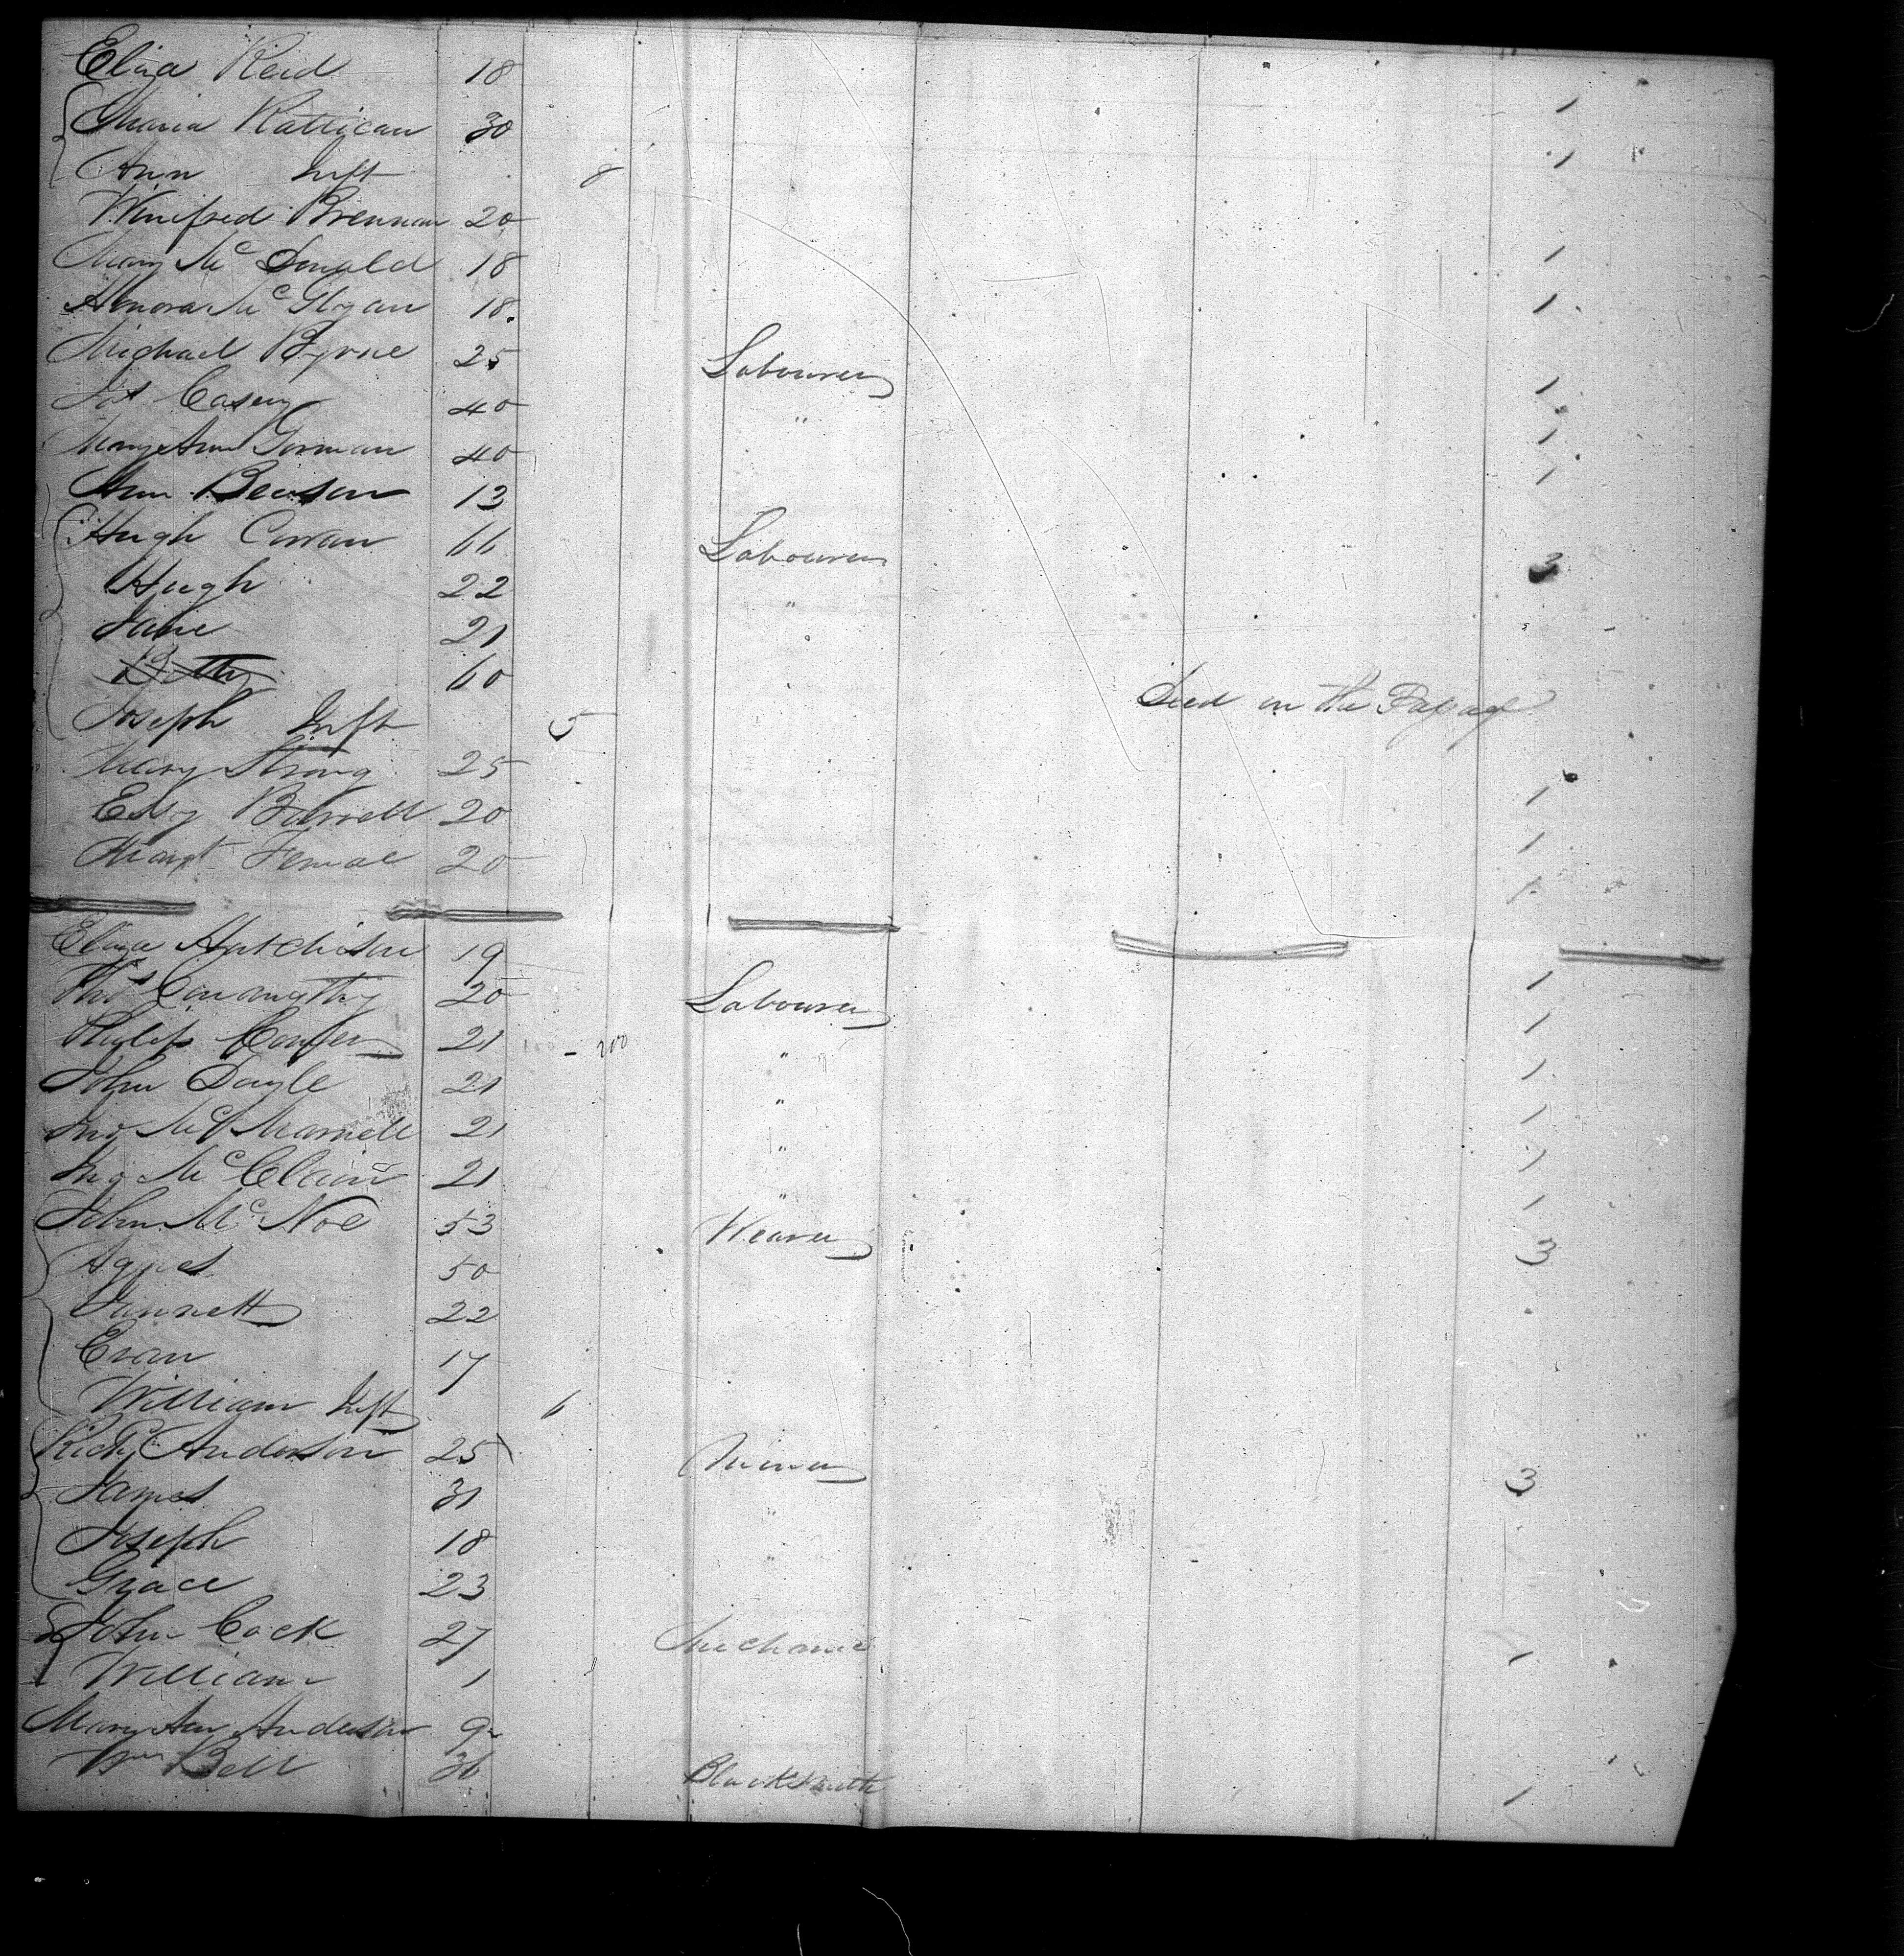 Eliza Reid 18
Maria Rattican 30 1
Ann Inft 8 1
Winifred Brennan 20
Mary Mc Donald 18 1
Honora Mc Glyan 18 1
Michael Byrne 25 Labourer
Jos Casey 40 " 1
Mary Ann Gorman 40 1
Ann Benson 13 1
Hugh Curran 66 Labourer 3
Hugh 22 "
Jane 21
Betty 60 Died on the Passage
Joseph Inft 5
Mary Strong 25
Essy Burrell 20 1
Margt 20 1
1
Eliza Hutchison 19
Thos 20 Labourer 1
Philip 21 - 200 " 1
John Doyle 21 " 1
Jno 21 " 1
Jno Mc 21 " 1
John Mc Noe 53 Weaver 1
Agnes 50 3
Jannett 22
Evan 17
William Inft 6
Richd Anderson 25 Miner
James 31 " 3
Joseph 18 "
Grace 23
John Cock 27 Mechanic
William 1 1
Mary Ann Anderson 9
Wm Bell 36 Blacksmith 1